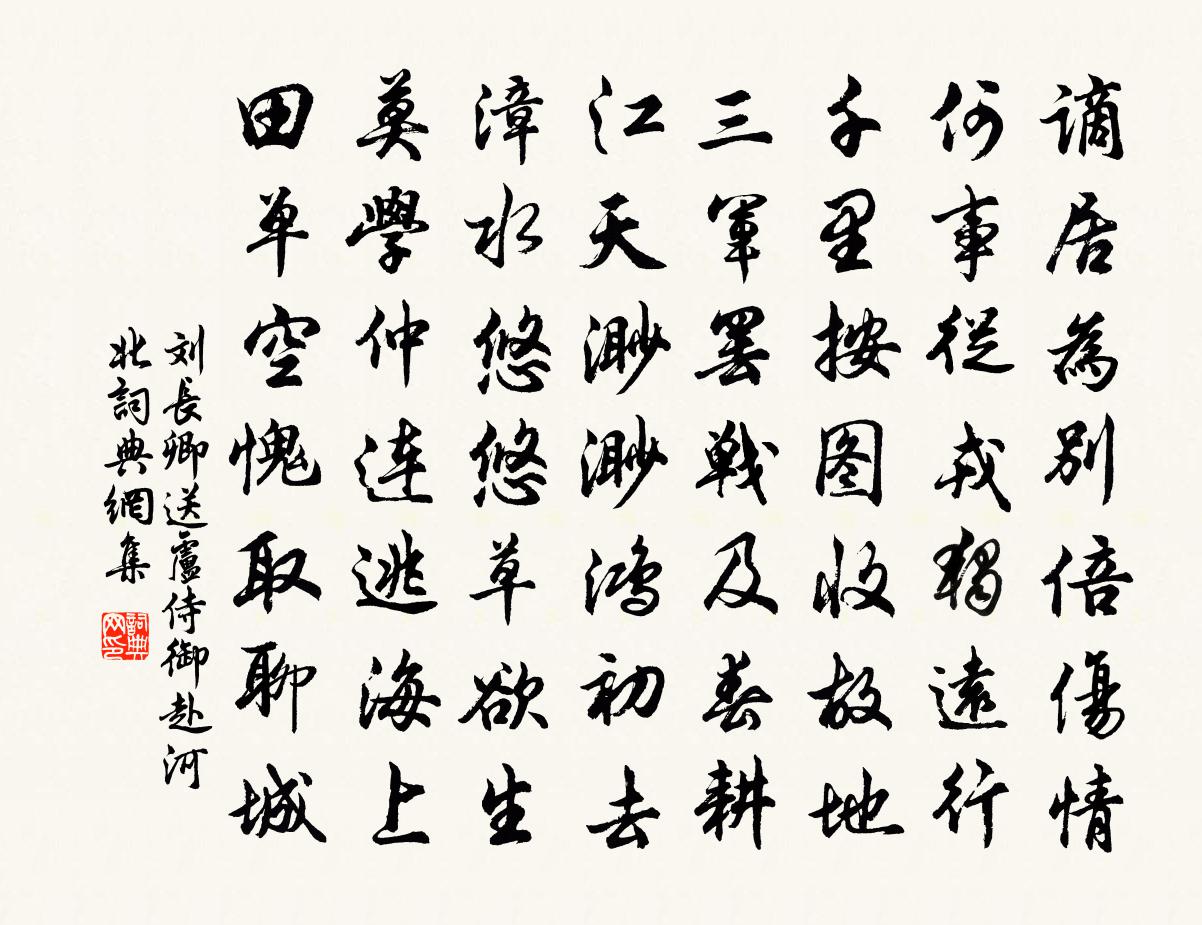 谪居為别倍傷情
何事從戎獨遠行
千里按图收故地
三軍罢戦及春耕
江天渺渺鴻初去
漳水悠悠草欲生
莫學仲连逃海上
田单空愧取聊城
刘長卿送盧侍御赴河
北詞典網集
詞典
网印